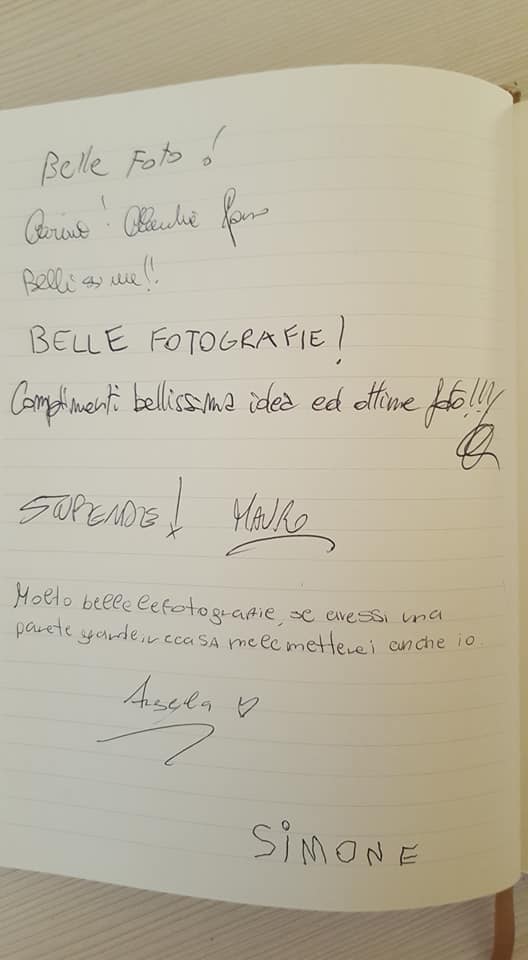 Belle Foto!
Carino!
Bellissime!!
BELLE FOTOGRAFIE!
Complimenti bellissima idea ed ottime foto!!!
STUPENDE! MAURO
Molto belle le fotografie, se avessi una
parete grande in casa me le metterei anche io.
Angela
SiMONE